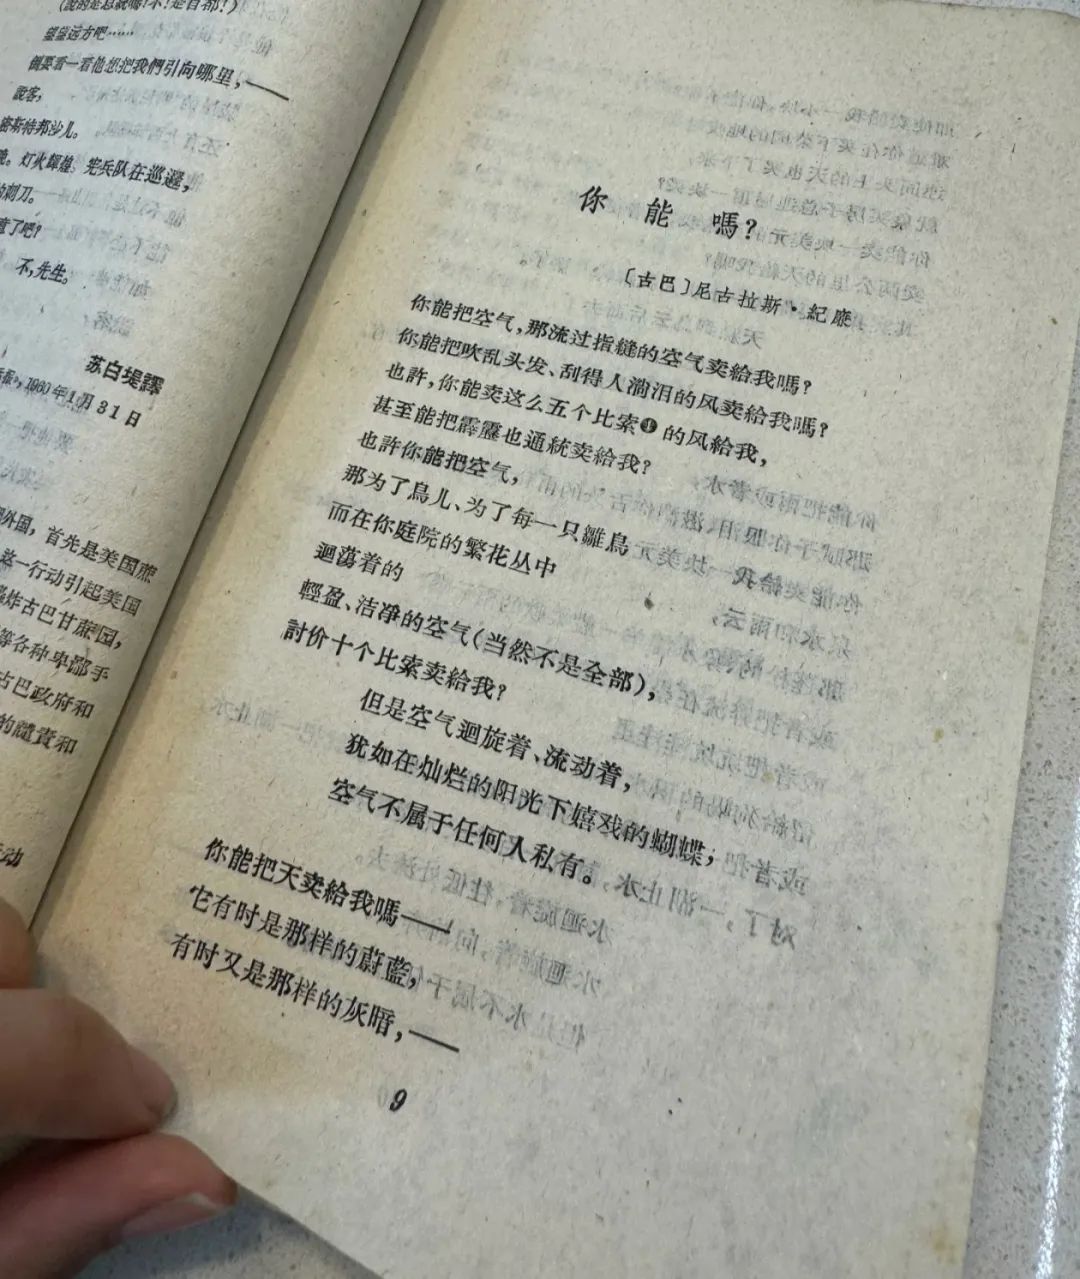 (説的是总統嗎?不!是首都!)
望望远方吧……
倒要看一看他想把我們引向哪里,——
説客;
密斯特邦沙儿。
晚。灯火輝煌。宪兵队在巡邏,
的刺刀。
意了吧?
不,先生。
苏白堤譯
1960年1月31日
外国,首先是美国蔗
这一行动引起美国
轟炸古巴甘蔗园,
等各种卑鄙手
古巴政府和
的譴責和
动
你能嗎?
〔古巴〕尼古拉斯·紀廉
你能把空气,那流过指縫的空气卖給我嗎?
你能把吹乱头发、刮得人淌泪的风卖給我嗎?
也許,你能卖这么五个比索①的风給我,
甚至能把霹靂也通統卖給我?
也許你能把空气,
那为了鳥儿、为了每一只雛鳥
而在你庭院的繁花丛中
迴荡着的
輕盈、洁净的空气(当然不是全部),
討价十个比索卖給我?
但是空气迴旋着、流动着,
犹如在灿烂的阳光下嬉戏的蝴蝶;
空气不属于任何人私有。
你能把天卖給我嗎——
它有时是那样的蔚藍,
有时又是那样的灰暗,——
9